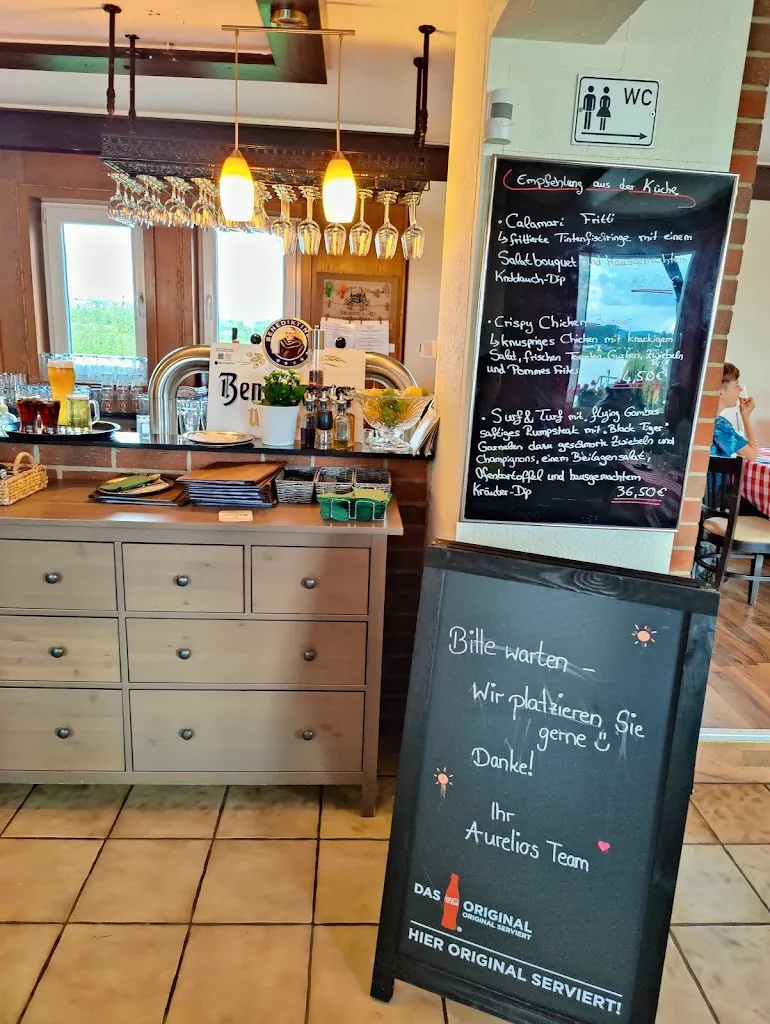 WC
Empfehlung aus der Küche
• Calamari Fritti
↳ frittierte Tintenfischringe mit einem
Salatbouquet und hausgemachtem
Knoblauch-Dip
• Crispy Chicken
↳ knuspriges Chicken mit knackigem
Salat, frischen Tomaten Gurken, Zwiebeln
und Pommes Frites
4,50€
• Surf & Turf mit "flying Gambas"
saftiges Rumpsteak mit "Black Tiger"
Garnelen dazu geschmorte Zwiebeln und
Champignons, einem Beilagensalat,
Ofenkartoffel und hausgemachtem
Kräuter-Dip
36,50€
BENEDIKTINER
Ben
Bitte warten –
Wir platzieren Sie
gerne
Danke!
Ihr
Aurelios Team
DAS
Coca-Cola
ORIGINAL
ORIGINAL SERVIERT
HIER ORIGINAL SERVIERT!